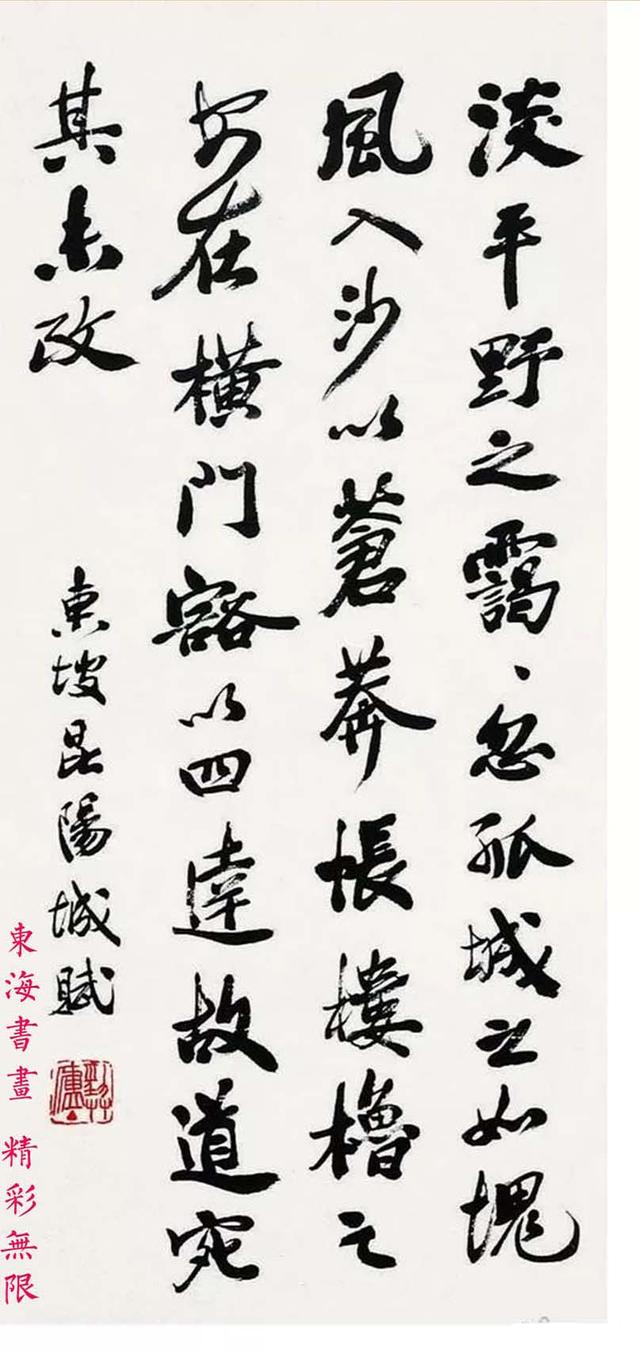 淡平野之靄〻忽孤城之如塊
風入沙以蒼莽悵樓櫓之
安在橫門豁以四達故道宛
其未改
東坡昆陽城賦
東海書畫 精彩無限